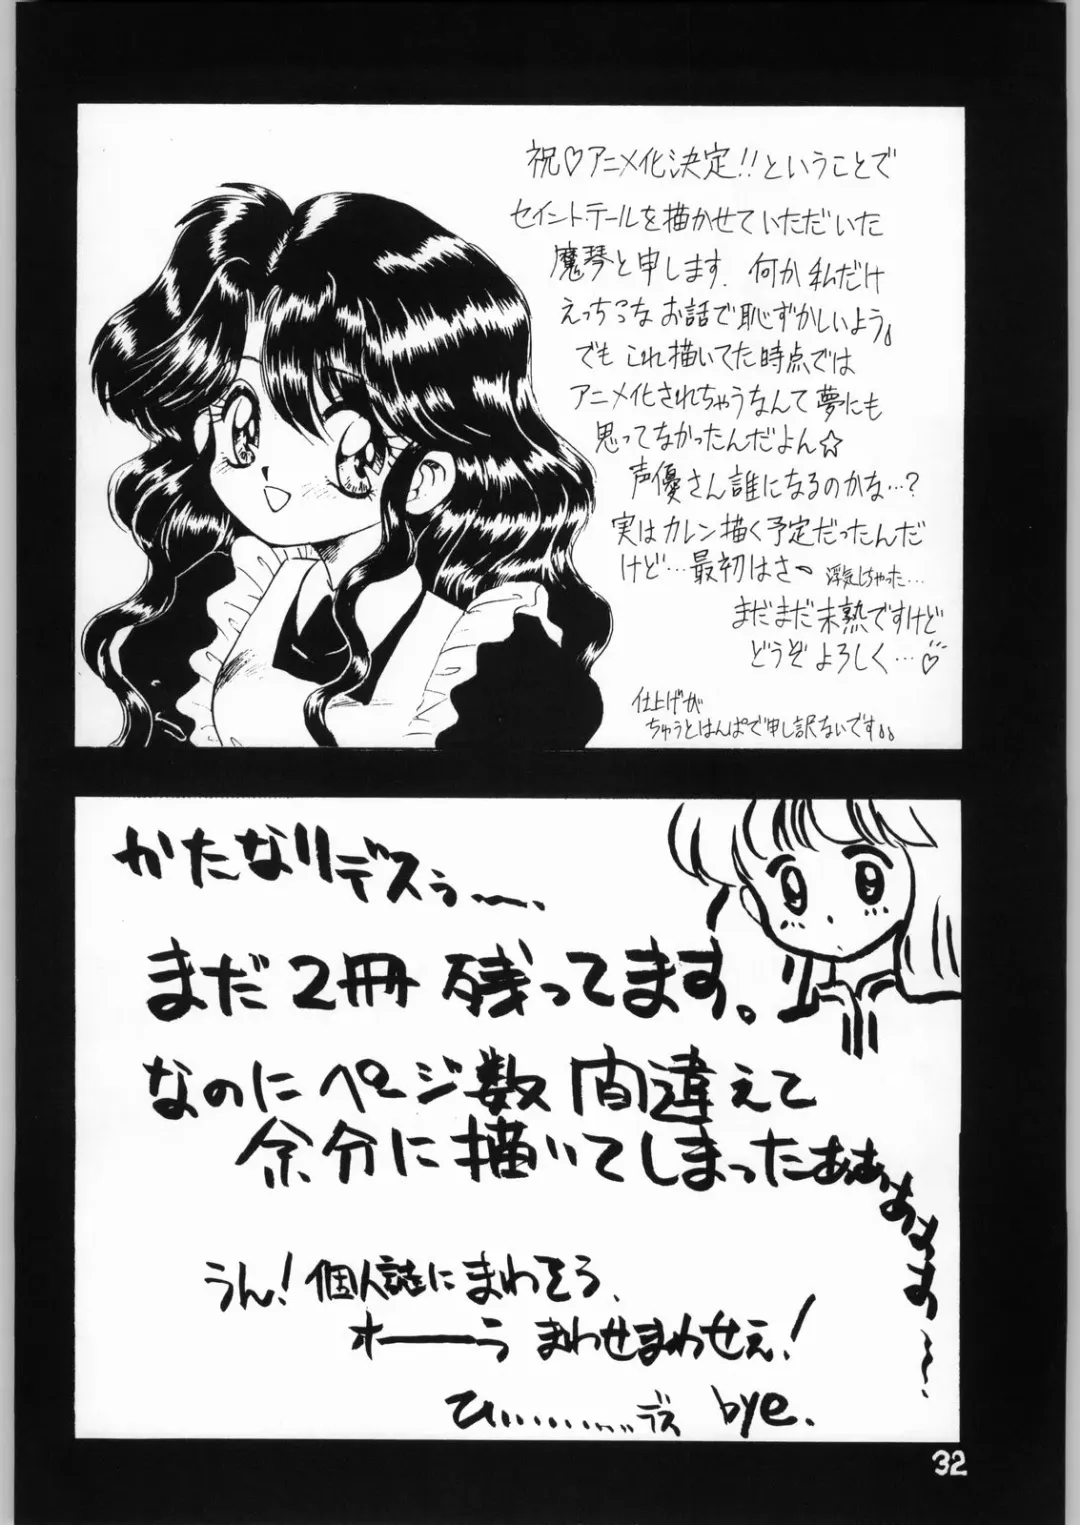 祝♡アニメ化決定!!ということで
セイントテールを描かせていただいた
魔琴と申します.何か私だけ
えっちっな お話で恥ずかしいよう。
でも これ描いてた時点では
アニメ化されちゃうなんて夢にも
思ってなかったんだよん☆
声優さん誰になるのかな…?
実はカレン描く予定だったんだ
けど…最初はさ〜 浮気しちゃった…
まだまだ未熟ですけど
どうぞよろしく…♡
仕上げが
ちゅうとはんぱで申し訳ないです。。
かたなりデスぅ〜、
まだ2冊 残ってます。
なのにページ数間違えて
余分に描いてしまったぁぁぁぁぁ〜
うん!個人誌にまわそう、
オーーーラ まわせまわせぇ!
てひ..........デス bye.
32